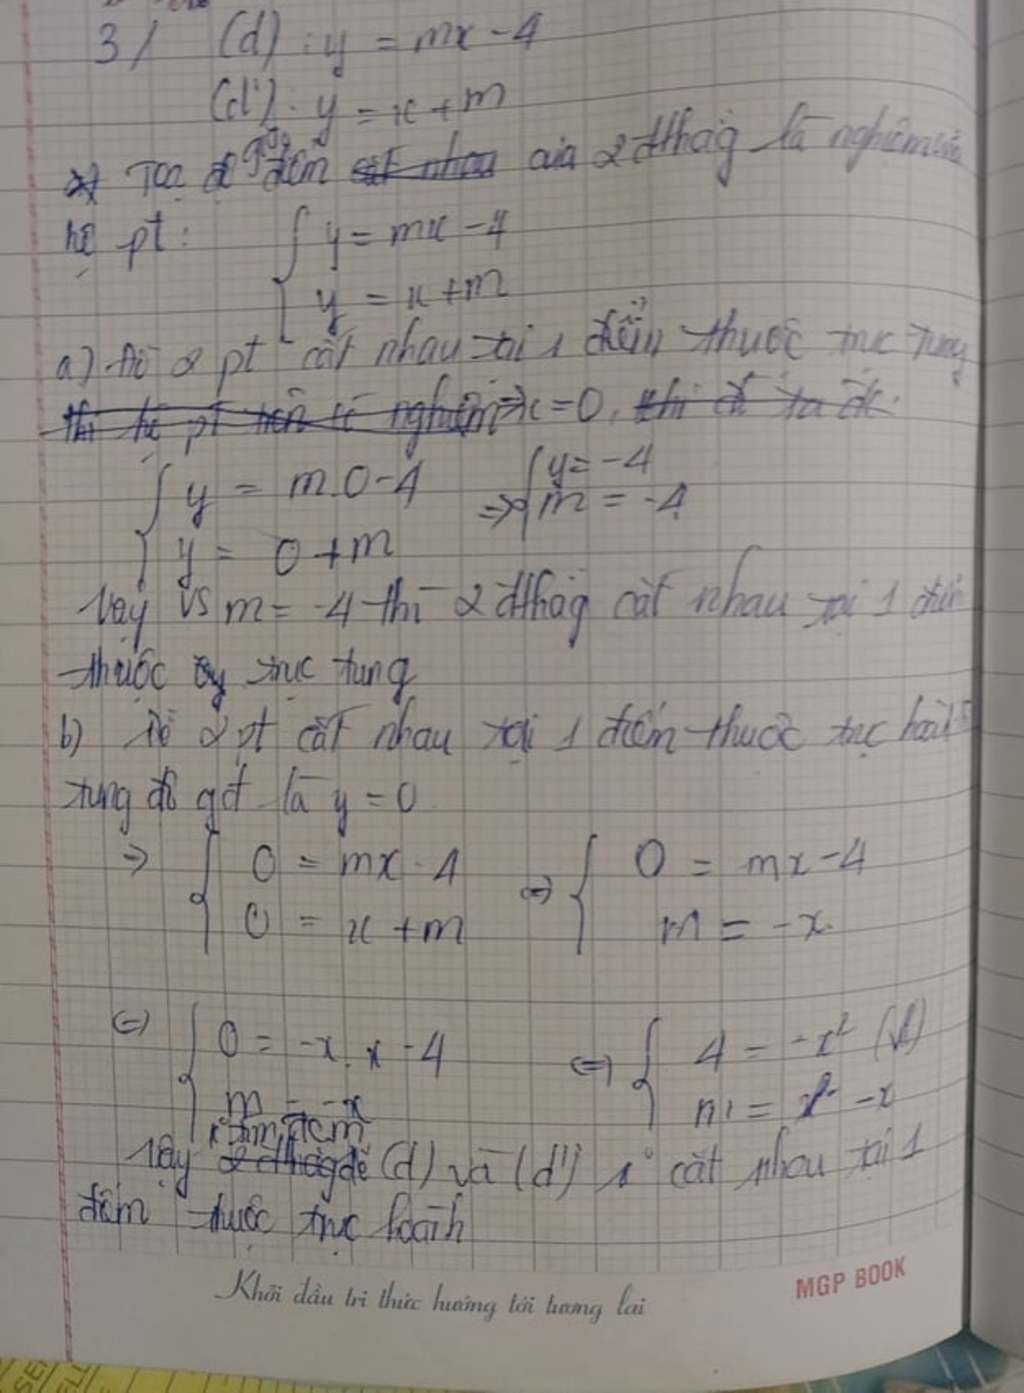 3/ (d) : y = mx - 4
(d'). y = x + m
Toạ độ gđ điểm của 2 đthẳg là nghiệm của
hệ pt: { y = mx - 4
y = x + m
a) Để 2 pt cắt nhau tại 1 điểm thuộc trục tung
=> x = 0.
{ y = m.0 - 4 => { y = -4
y = 0 + m m = -4
Vậy vs m = -4 thì 2 đthẳg cắt nhau tại 1 điểm
thuộc trục tung
b) Để 2 pt cắt nhau tại 1 điểm thuộc trục hoành
tung độ gđ là y = 0
=> { 0 = mx - 4 <=> { 0 = mx - 4
0 = x + m m = -x.
<=> { 0 = -x . x - 4 <=> { 4 = -x² (vl)
m = -x m = -x
Vậy để (d) và (d') cắt nhau tại 1
điểm thuộc trục hoành
Khởi đầu tri thức hướng tới tương lai
MGP BOOK